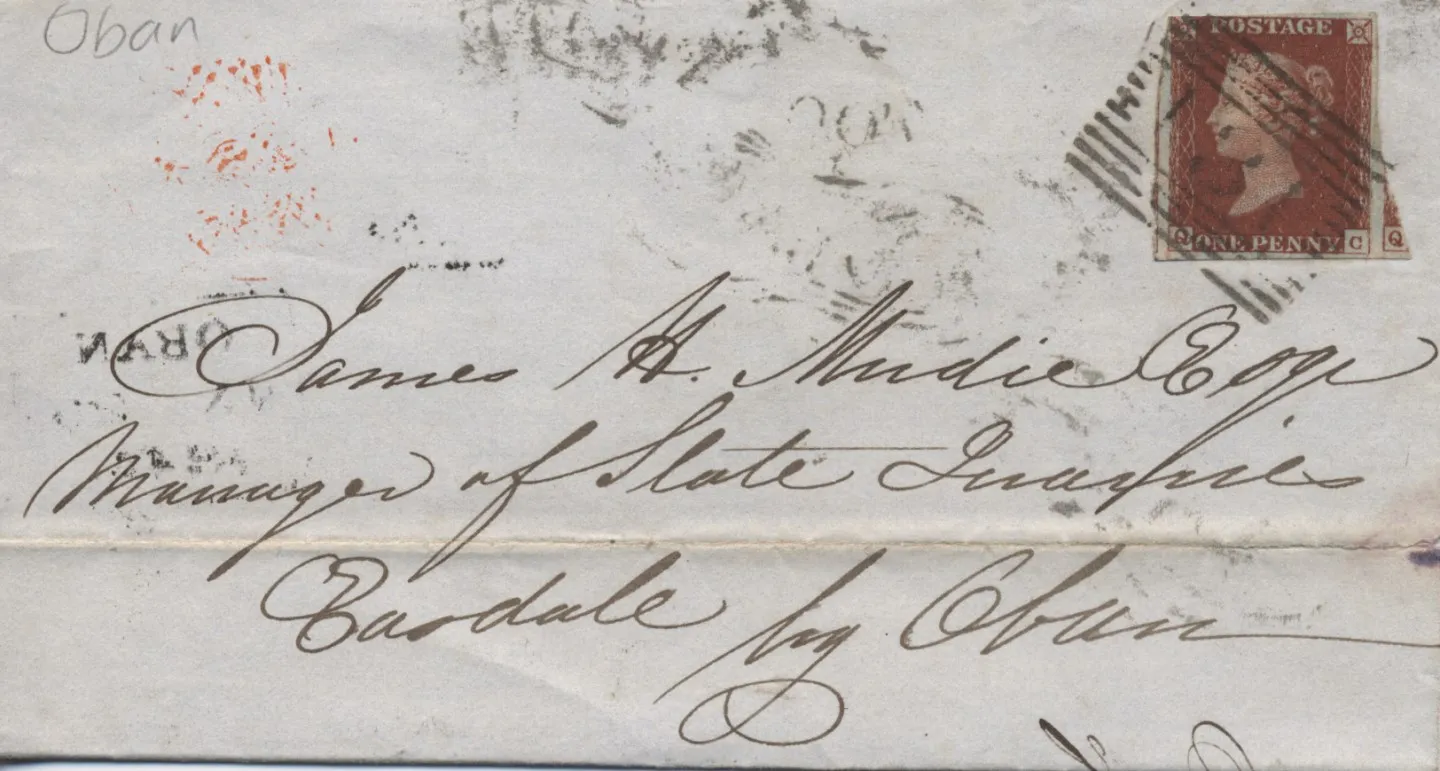 Oban
POSTAGE
Q ONE PENNY C Q
OBAN
James H. Mudie Esqr
Manager of Slate Quarries
Easdale by Oban